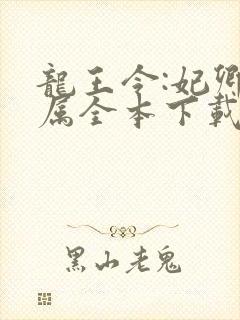 龍王令:妃卿
属全本下載
黑山老鬼